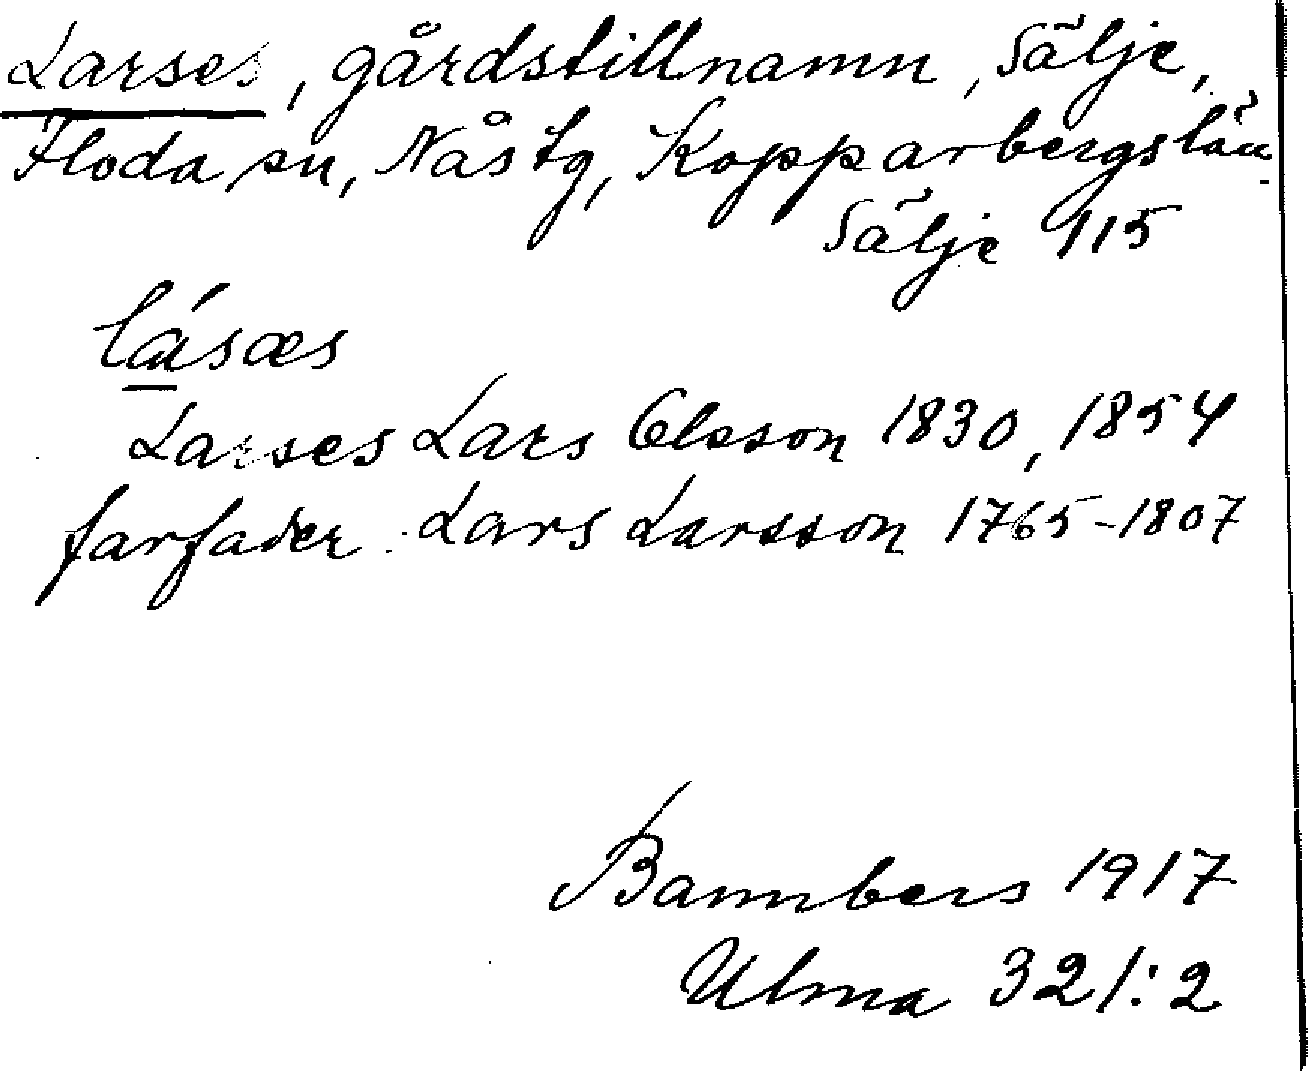 Larses, gårdstillnamn, Sälje,
Floda sn, Nås tg, Kopparbergs län.
Sälje 115
lásæs
Larses Lars Olsson 1830, 1854
farfader: Lars Larsson 1765-1807
Bannbers 1917
Ulma 321:2